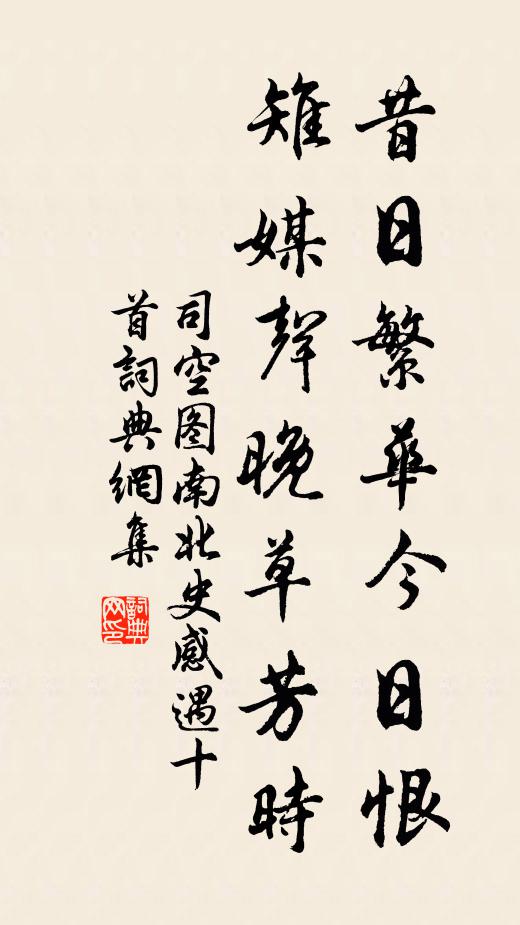 昔日繁華今日恨
雉媒聲晚草芳時
司空图南北史感遇十
首詞典網集
詞典
网印